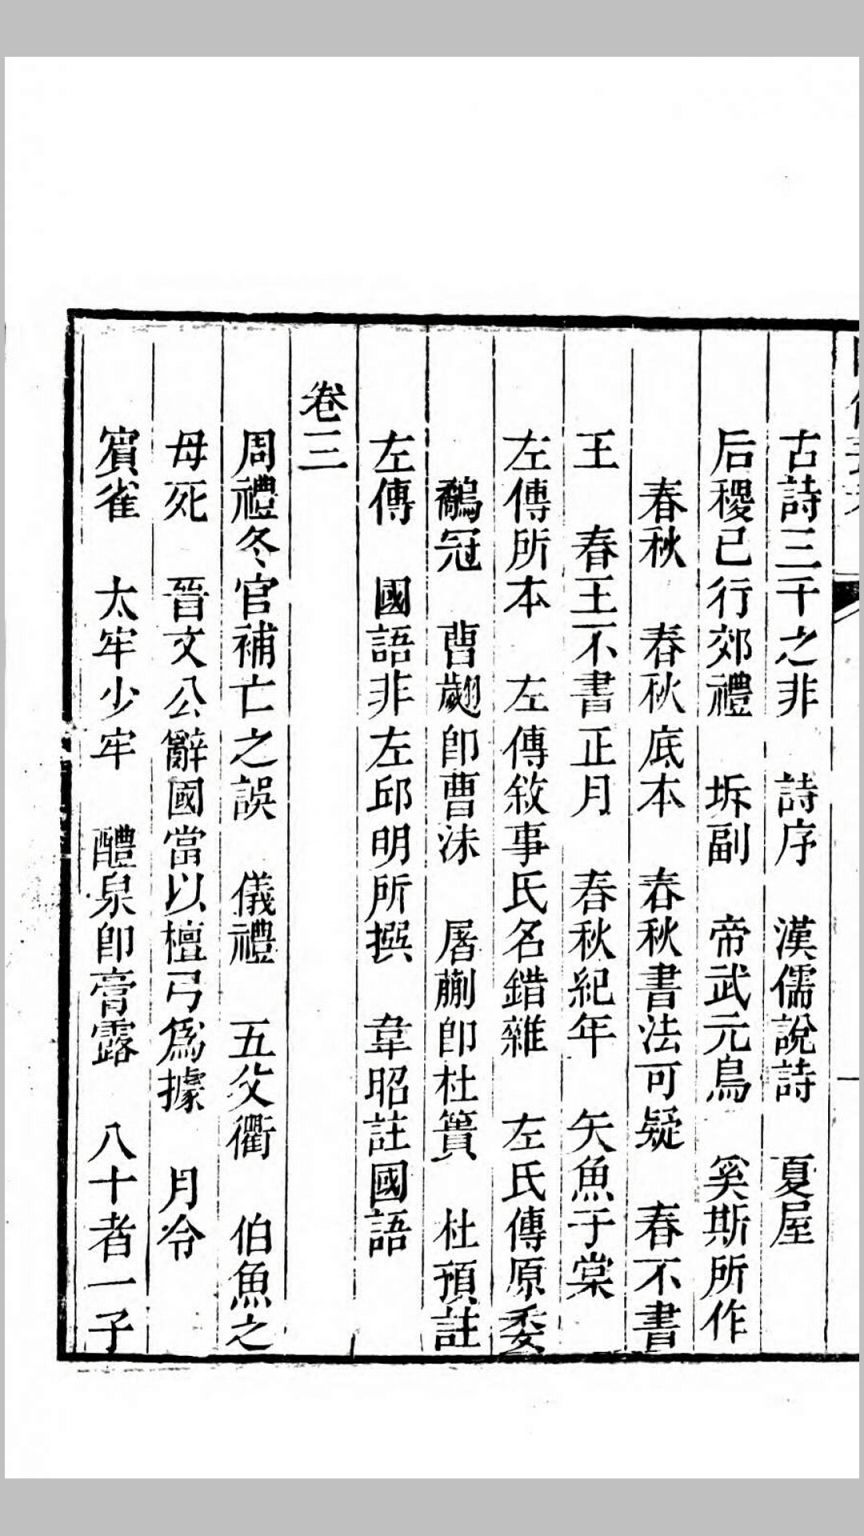 古詩三千之非　詩序　漢儒說詩　夏屋
后稷已行郊禮　坼副　帝武元鳥　奚斯所作
春秋　春秋底本　春秋書法可疑　春不書
王　春王不書正月　春秋紀年　矢魚于棠
左傳所本　左傳敘事氏名錯雜　左氏傳原委
鷸冠　曹翽卽曹沬　屠蒯卽杜簣　杜預註
左傳　國語非左邱明所撰　韋昭註國語
卷三
周禮冬官補亡之誤　儀禮　五父衢　伯魚之
母死　晉文公辭國當以檀弓爲據　月令
賓雀　太牢少牢　醴泉卽膏露　八十者一子